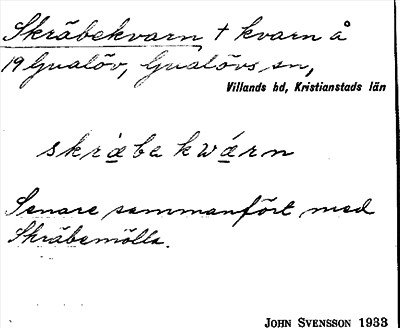 Skräbekvarn † kvarn å
19 Gualöv, Gualövs sn,
Villands hd, Kristianstads län
skräbe kwárn
Senare sammanfört med
Skräbemölla.
JOHN SVENSSON 1933